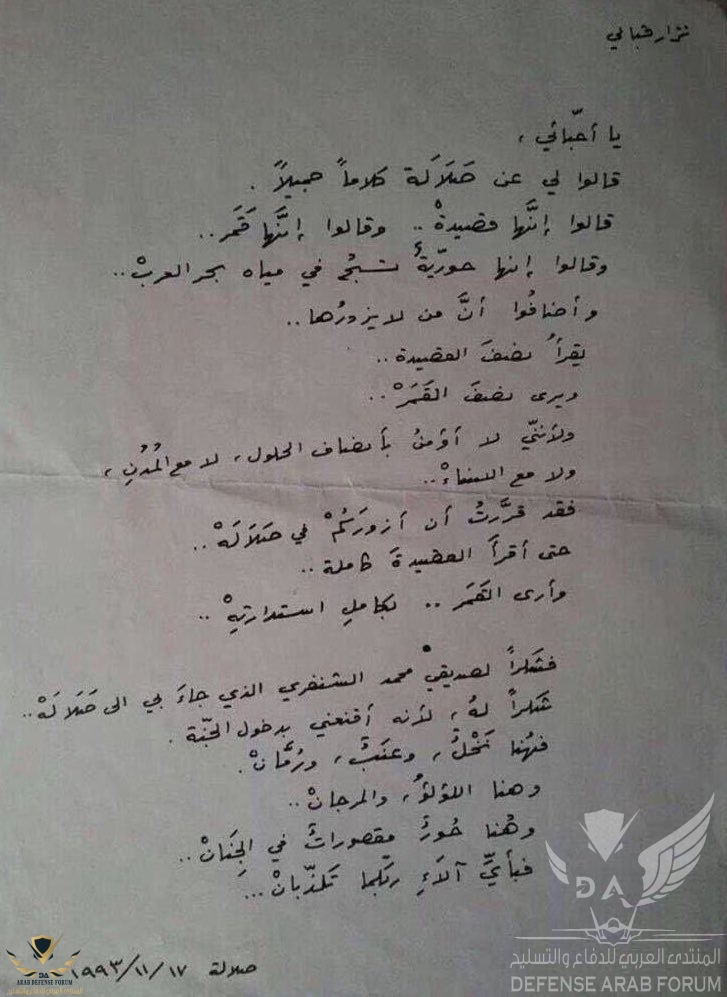 نزار قباني
يا أحبّائي،
قالوا لي عن صَلَالَة كلاماً جميلاً.
قالوا إنَّها قصيدةْ.. وقالوا إنَّها قَمَر..
وقالوا إنها حوريّةٌ تسبحُ في مياه بحر العربْ..
وأضافُوا أنَّ من لا يزورُها..
يقرأُ نصفَ القصيدة..
ويرى نصفَ القَمَرْ..
ولأنني لا أؤمنُ بأنصاف الحلول، لا مع المُدُنِ،
ولا مع النساءْ..
فقد قرَّرتُ أن أزورَكُمْ في صَلَالَهْ..
حتى أقرأَ القصيدةَ كاملة..
وأرى القَمَر.. بكاملِ استدارتِهْ..
فشكراً لصديقيْ محمد الشنفري الذي جاءَ بي الى صَلَالَهْ..
شكراً لهُ، لأنه أقنعني بدخول الجنّة.
فهُنا نَخْلٌ، وعنَبٌ، ورُمَّانْ.
وهنا اللؤلؤُ، والمرجانْ..
وهُنا حُورٌ مقصوراتٌ في الجِنَانْ..
فبأيِّ آلاءِ ربّكما تكذّبانْ...
صلالة ١٩٩٣/١١/١٧
DA
المنتدى العربي للدفاع والتسليح
DEFENSE ARAB FORUM
DA
ARAB DEFENSE FORUM